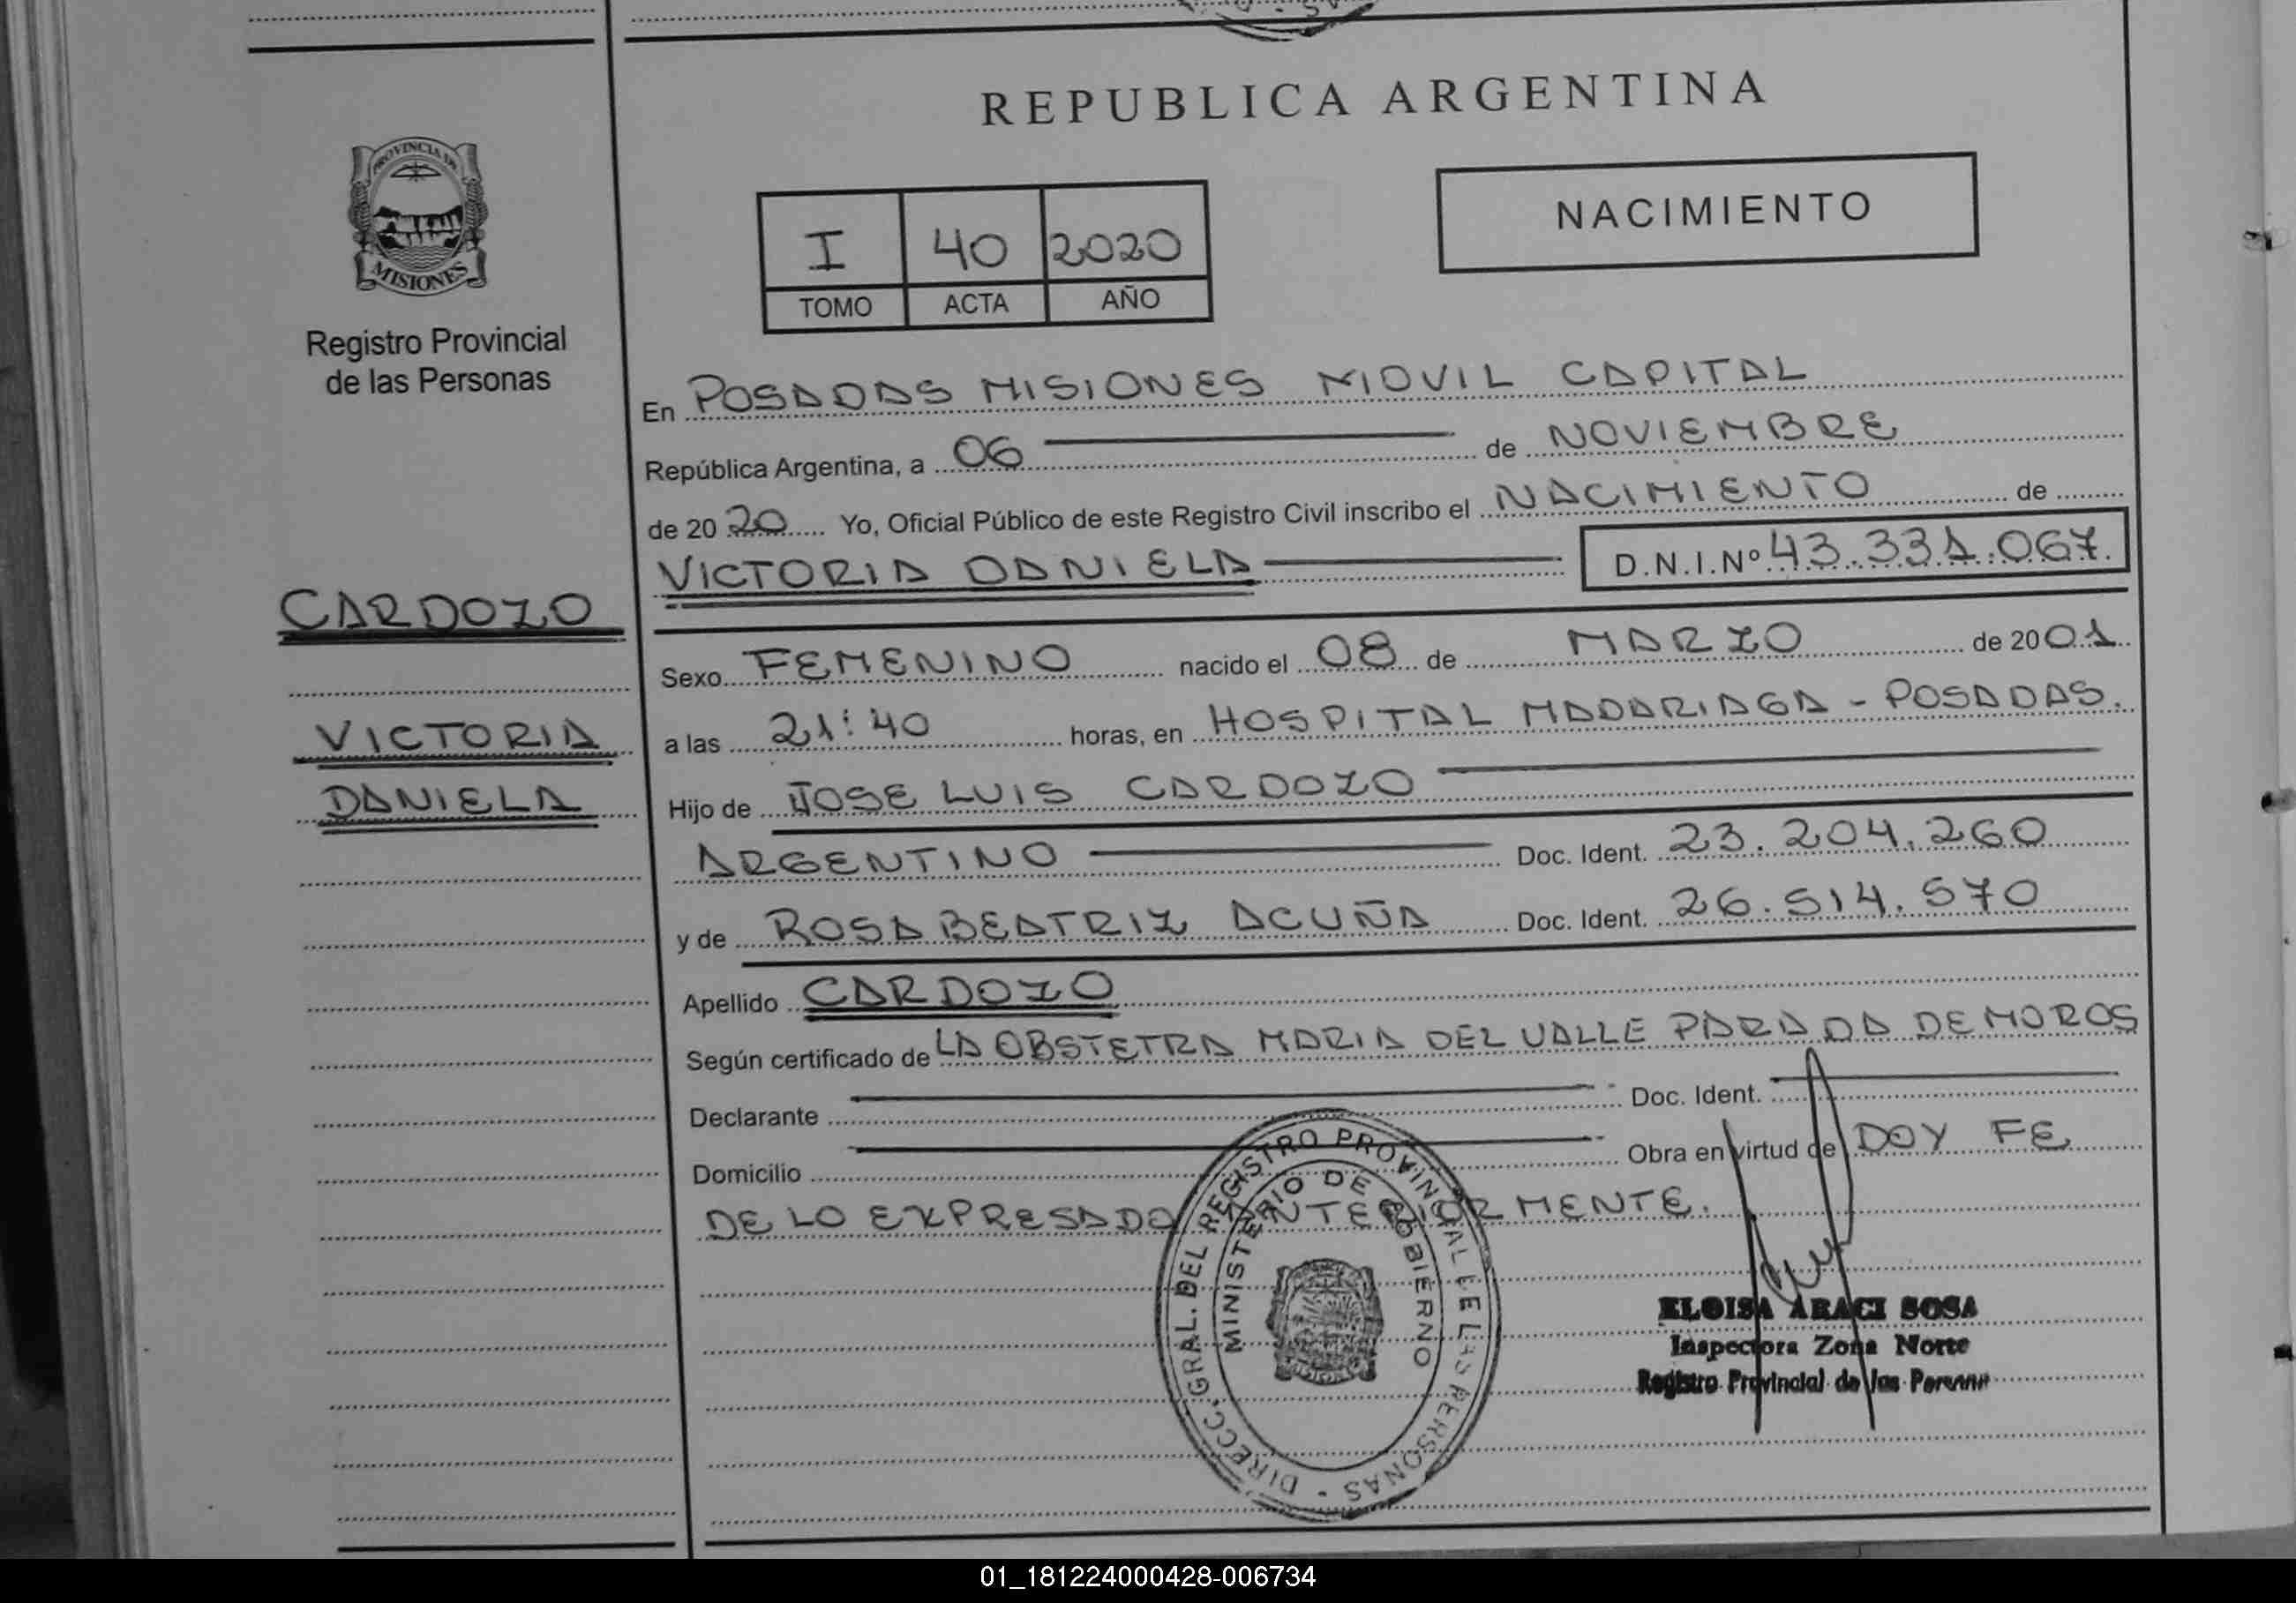 REPUBLICA ARGENTINA
PROVINCIA DE
MISIONES
Registro Provincial
de las Personas
NACIMIENTO
I 40 2020
TOMO ACTA AÑO
En POSADAS MISIONES MOVIL CAPITAL
República Argentina, a 06 de NOVIEMBRE
de 2020 Yo, Oficial Público de este Registro Civil inscribo el NACIMIENTO de
VICTORIA DANIELA D.N.I.Nº 43.331.067.
CARDOZO
VICTORIA
DANIELA
Sexo FEMENINO nacido el 08 de MARZO de 2001
a las 21:40 horas, en HOSPITAL MADARIAGA - POSADAS.
Hijo de JOSE LUIS CARDOZO
ARGENTINO Doc. Ident. 23.204.260
y de ROSA BEATRIZ ACUÑA Doc. Ident. 26.514.570
Apellido CARDOZO
Según certificado de LA OBSTETRA MARIA DEL VALLE PARADA DE MOROS
Declarante Doc. Ident.
Domicilio Obra en virtud de DOY FE
DE LO EXPRESADO ANTERIORMENTE.
DIRECC. GRAL. DEL REGISTRO PROVINCIAL DE LAS PERSONAS
MINISTERIO DE GOBIERNO
ELOISA ARACI SOSA
Inspectora Zona Norte
Registro Provincial de las Personas
01_181224000428-006734